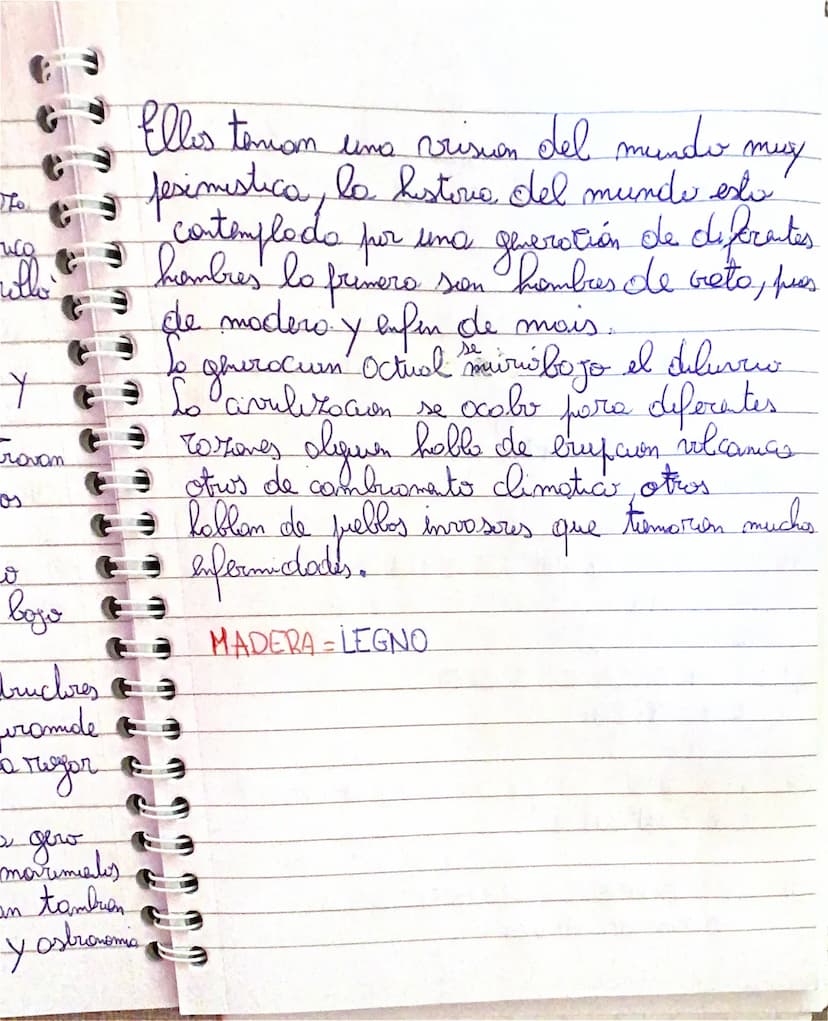 Ellos tenian una vision del mundo muy
pesimistica, la historia del mundo esta
contemplada por una generación de diferentes
hombres la primera son hombres de creta, pues
de madera y enfin de mais.
La generacion actual se murió bajo el diluvio
La civilizacion se acabo para diferentes
razones alguen habla de erupcion volcanica
otros de cambiamento climatico, otros
hablan de pueblos invasores que tiemarian muchas
enfermidades.
MADERA = LEGNO
uco
rollo
y
rovan
os
o
bajo
tructores
piramide
a mejor
gero
movimelos
an tambien
y astronomia